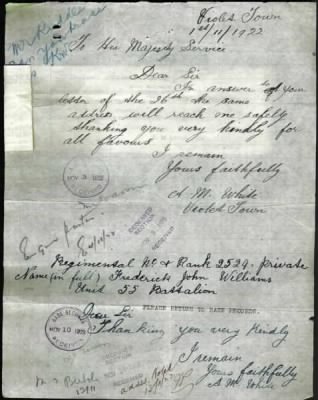 Violet Town
1st/11/1922
To His Majesty Service
Dear Sir
In answer to your
letter of the 26th the same
address will reach me safely
thanking you very kindly for
all favours
I remain
Yours faithfully
A M White
Violet Town
NOV 3 1922
Regimental No & Rank 2529. private
Name (in full) Frederick John Williams
Unit 55 Battalion
PLEASE RETURN TO BASE RECORDS.
Dear Sir
Thanking you very kindly
I remain
Yours faithfully
A M White
BASE RECORDS
NOV 10 1922
RECEIVED